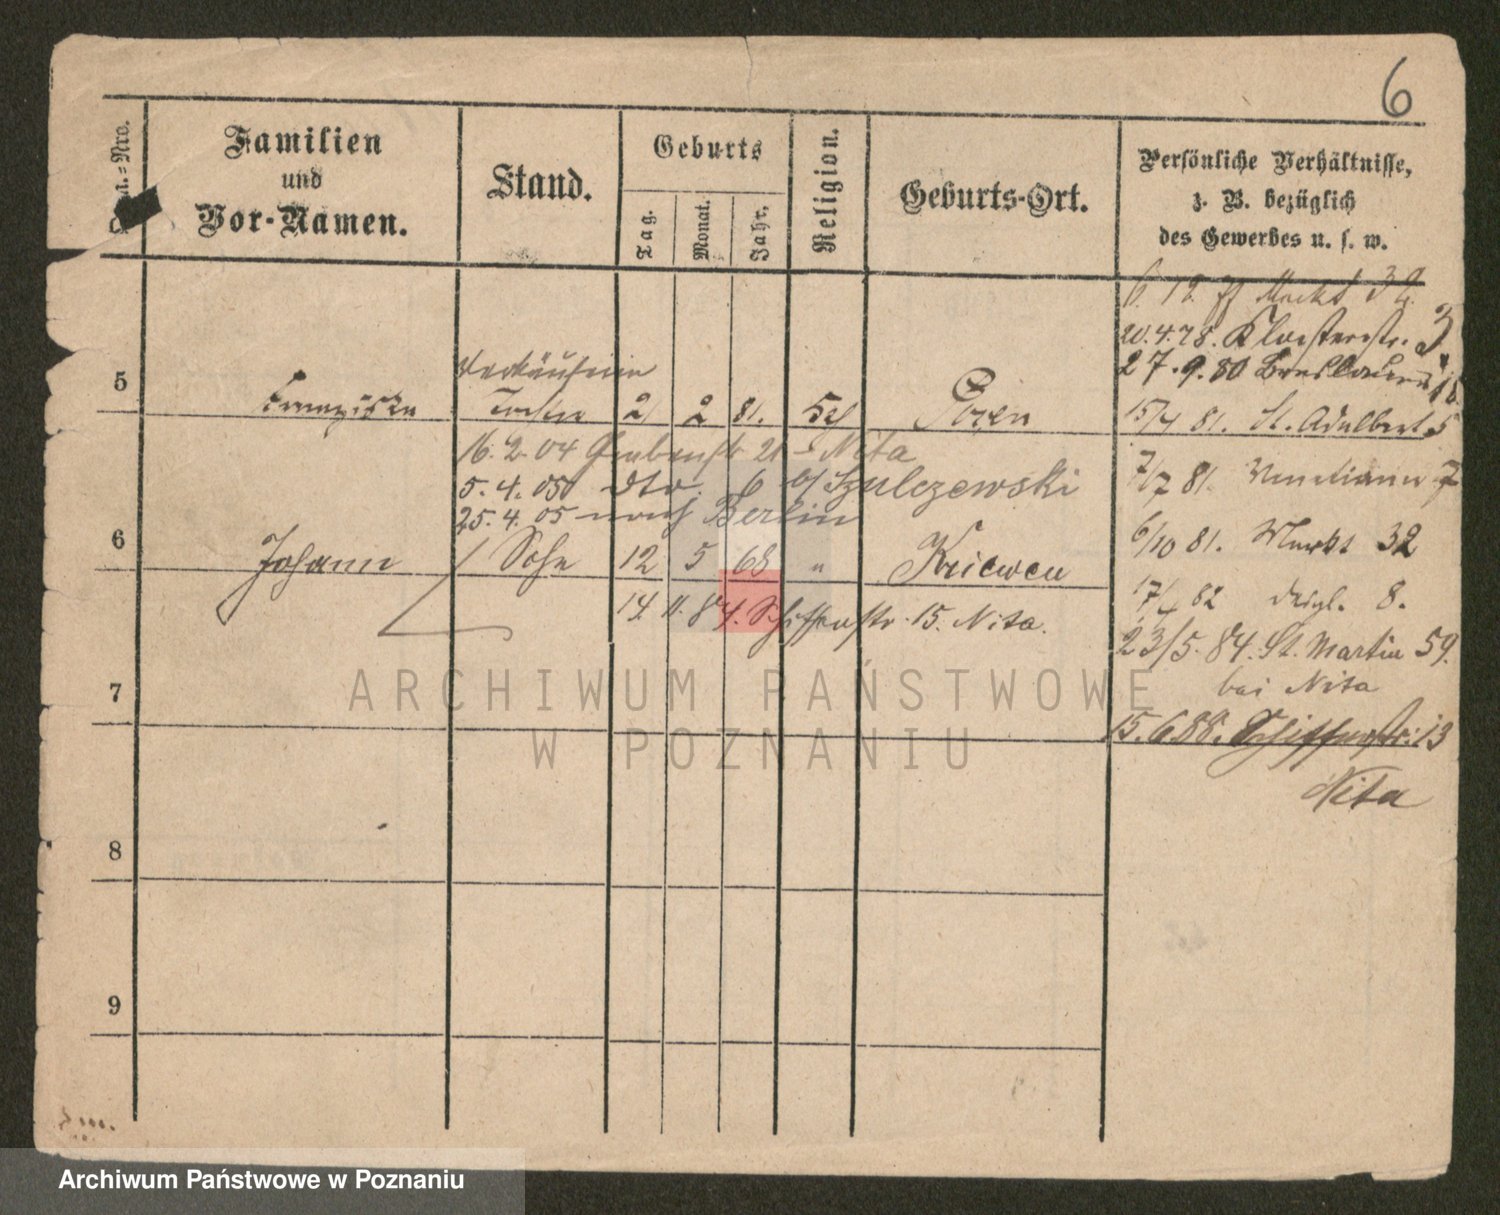 6
Lauf.-Nro.
Familien
und
Vor-Namen.
Stand.
Geburts
Tag.
Monat.
Jahr.
Religion.
Geburts-Ort.
Persönliche Verhältnisse,
z. B. bezüglich
des Gewerbes u. s. w.
6. 12. 77 Markt
20.4.78. Klosterstr. 3
27.9.80 Breslauerstr.
Verkäuferin
5 Franziska Tochter 2 2 81. Posen
15/4 81. St. Adalbert 5
16. 2. 04 Grabenstr 21 Nita
5. 4. 05 dto. 6 b/ Szulczewski
7/7 81. Venetianer 7
25. 4. 05 nach Berlin
6 Johann Sohn 12 5 68 " Kriewen
6/10 81. Markt 32
14. 11. 84. Schifferstr. 15. Nita.
17/4 82 dsgl. 8.
23/5. 84. St. Martin 59.
bei Nita
7
15.6.88. Schifferstr. 13
Nita
8
9
ARCHIWUM PAŃSTWOWE
W POZNANIU
Archiwum Państwowe w Poznaniu